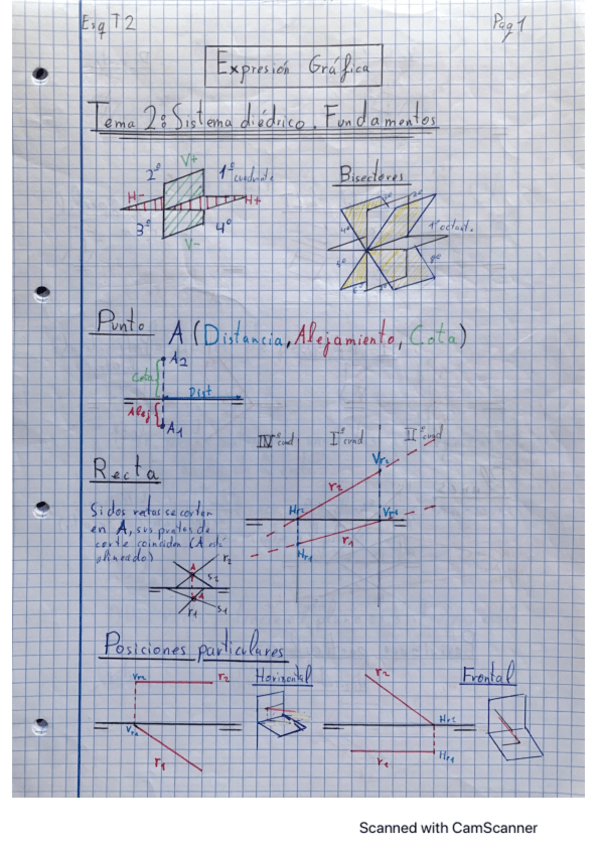 Esq T2
Pag 1
Expresión Gráfica
Tema 2: Sistema diédrico. Fundamentos
V+
2º
1º cuadrante
H-
H+
3º
4º
V-
Bisectores
1º octante
Punto A (Distancia, Alejamiento, Cota)
A2
Cota
Dist
Alej
A1
IVº cuad
Iº cuad
IIº cuad
Recta
Vr2
r2
Si dos rectas se cortan
en A, sus puntos de
corte coinciden (A está
alineado)
Hr2
Vr1
r1
Hr1
A
r2
s2
A
r1
s1
Posiciones particulares
Horizontal
Frontal
Vr2
r2
Vr1
r1
r2
Hr2
r1
Hr1
Scanned with CamScanner